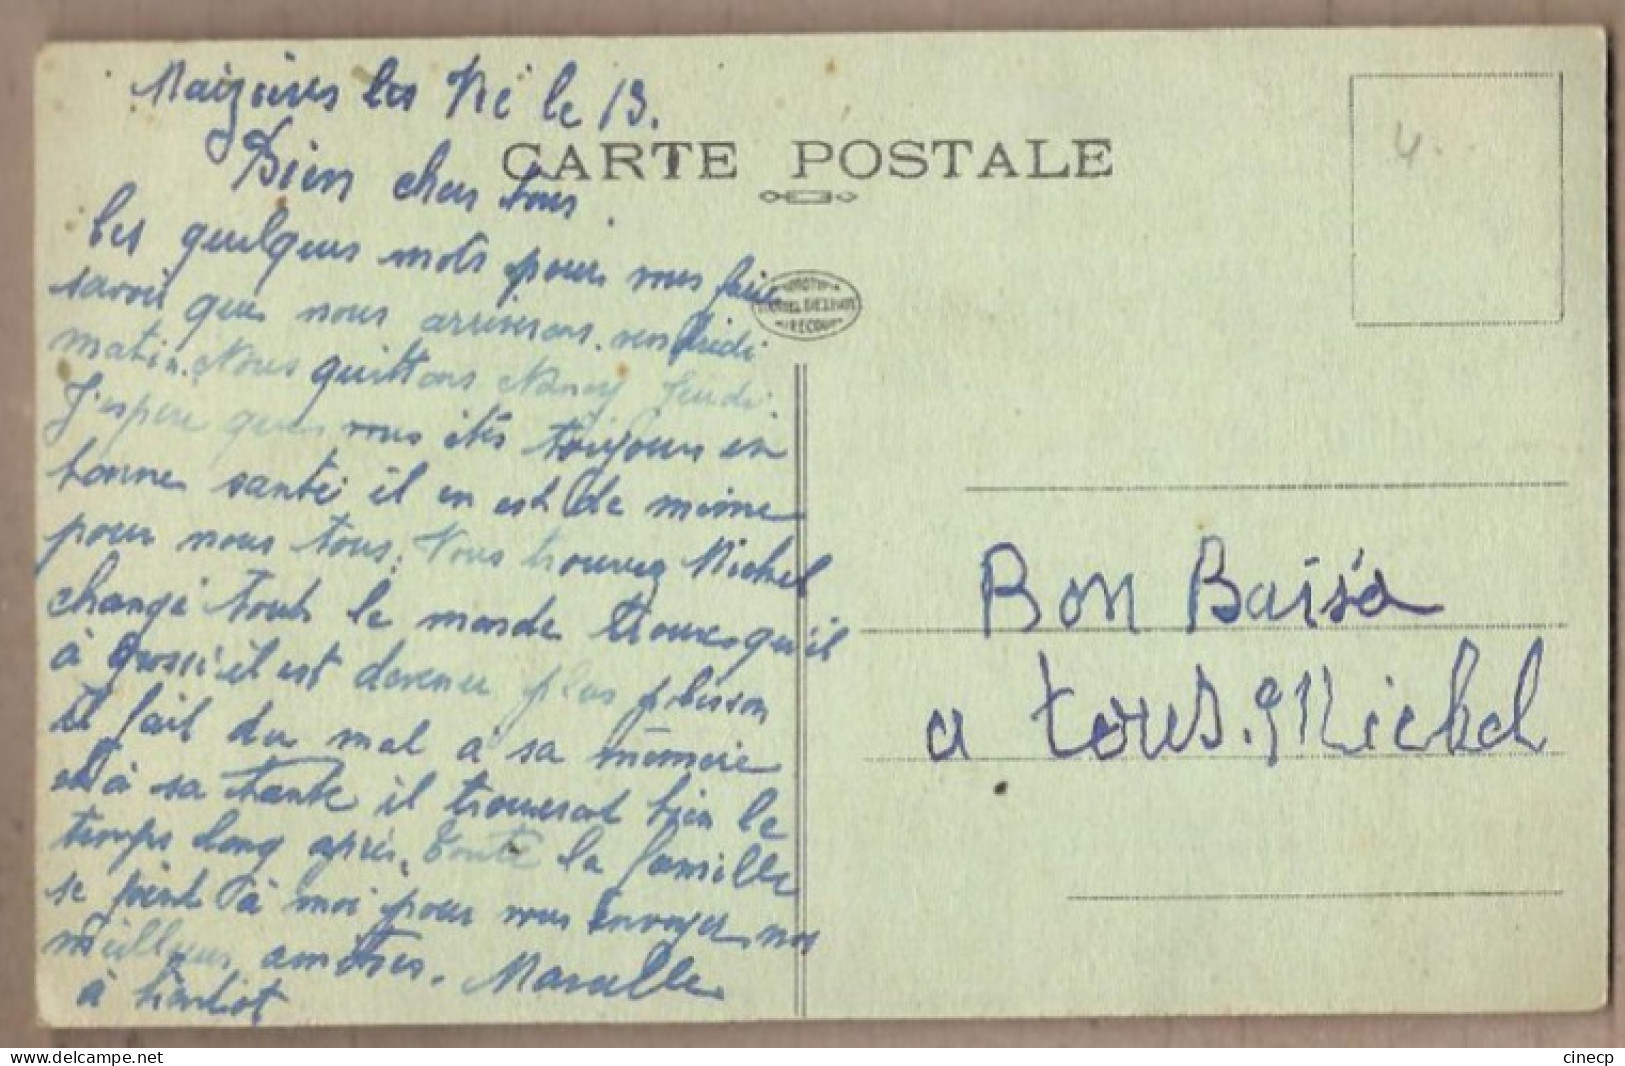 Maizières les Vic le 13.
CARTE POSTALE
Bien chers tous.
Ces quelques mots pour vous faire
savoir que nous arriverons vendredi
matin. Nous quittons Nancy Jeudi.
J'espère que vous êtes toujours en
bonne santé il en est de même
pour nous tous. Vous trouvez Michel
changé tout le monde trouve qu'il
à grossi il est devenu plus polisson
il fait du mal à sa mémère
et à sa tante il trouverat bien le
temps long après. Toute la famille
se joint à moi pour vous envoyer nos
meilleures amitiés. Marcelle
à bientot
Bon Baisa
a tous. Michel
4.
www.delcampe.net
cinecp